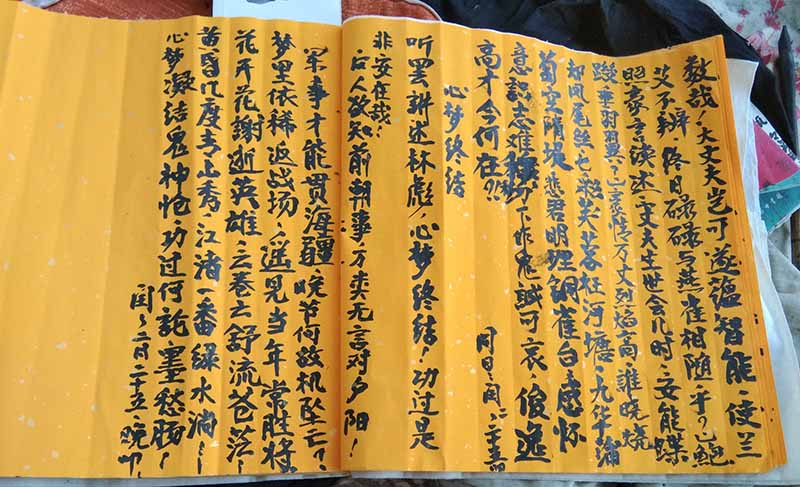 数哉！大丈夫岂可遂蕴智能，使兰
艾不辨，终日碌碌与燕雀相随乎？鲍
照豪言读述，丈夫生世会几时，安能蹀
躞垂羽翼？豪情万丈烈焰高，谁晓烧
却凤尾丝，七彩芙蓉枉河塘，九华蒲
萄空随堤，悲君明理铜雀台，感怀
意识志难 下，作鬼诚可哀，俊逸
高才今何在?!
同日闰二·二十五
心梦终结
听罢讲述林彪，心梦终结！功过是
非安在哉！
后人欲知前朝事，万类无言对夕阳！
军事才能贯海疆，晚节何故机坠亡？
梦里依稀返战场，遥见当年常胜将，
花开花谢逝英雄，云卷云舒流苍茫，
黄昏几度青山秀，江渚一番绿水淌，
心梦凝结鬼神怆，功过何论墨愁肠！
闰二月二十五晚